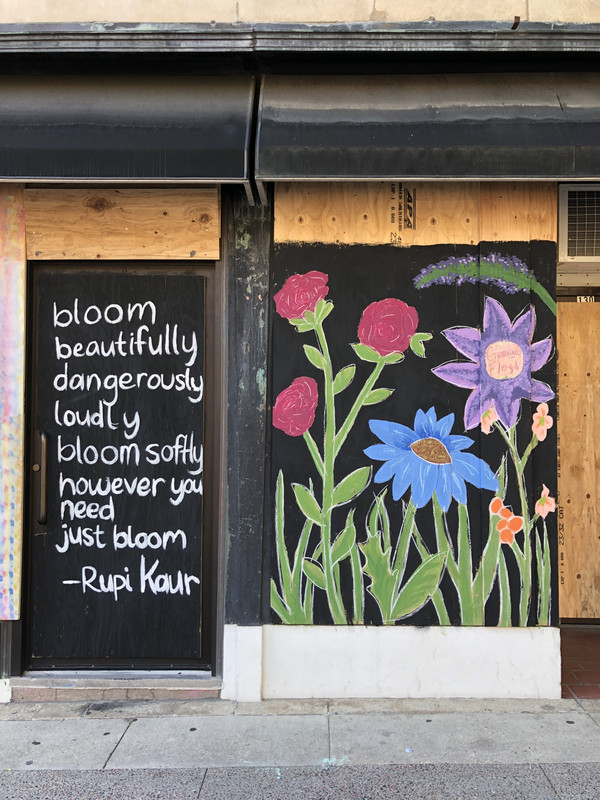 bloom
beautifully
dangerously
loudly
bloom softly
however you
need
just bloom
-Rupi Kaur
APA
Floyd
130
23/32